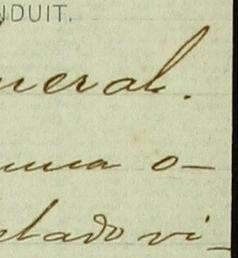 NDUIT.
neral.
uma o-
stado vi-